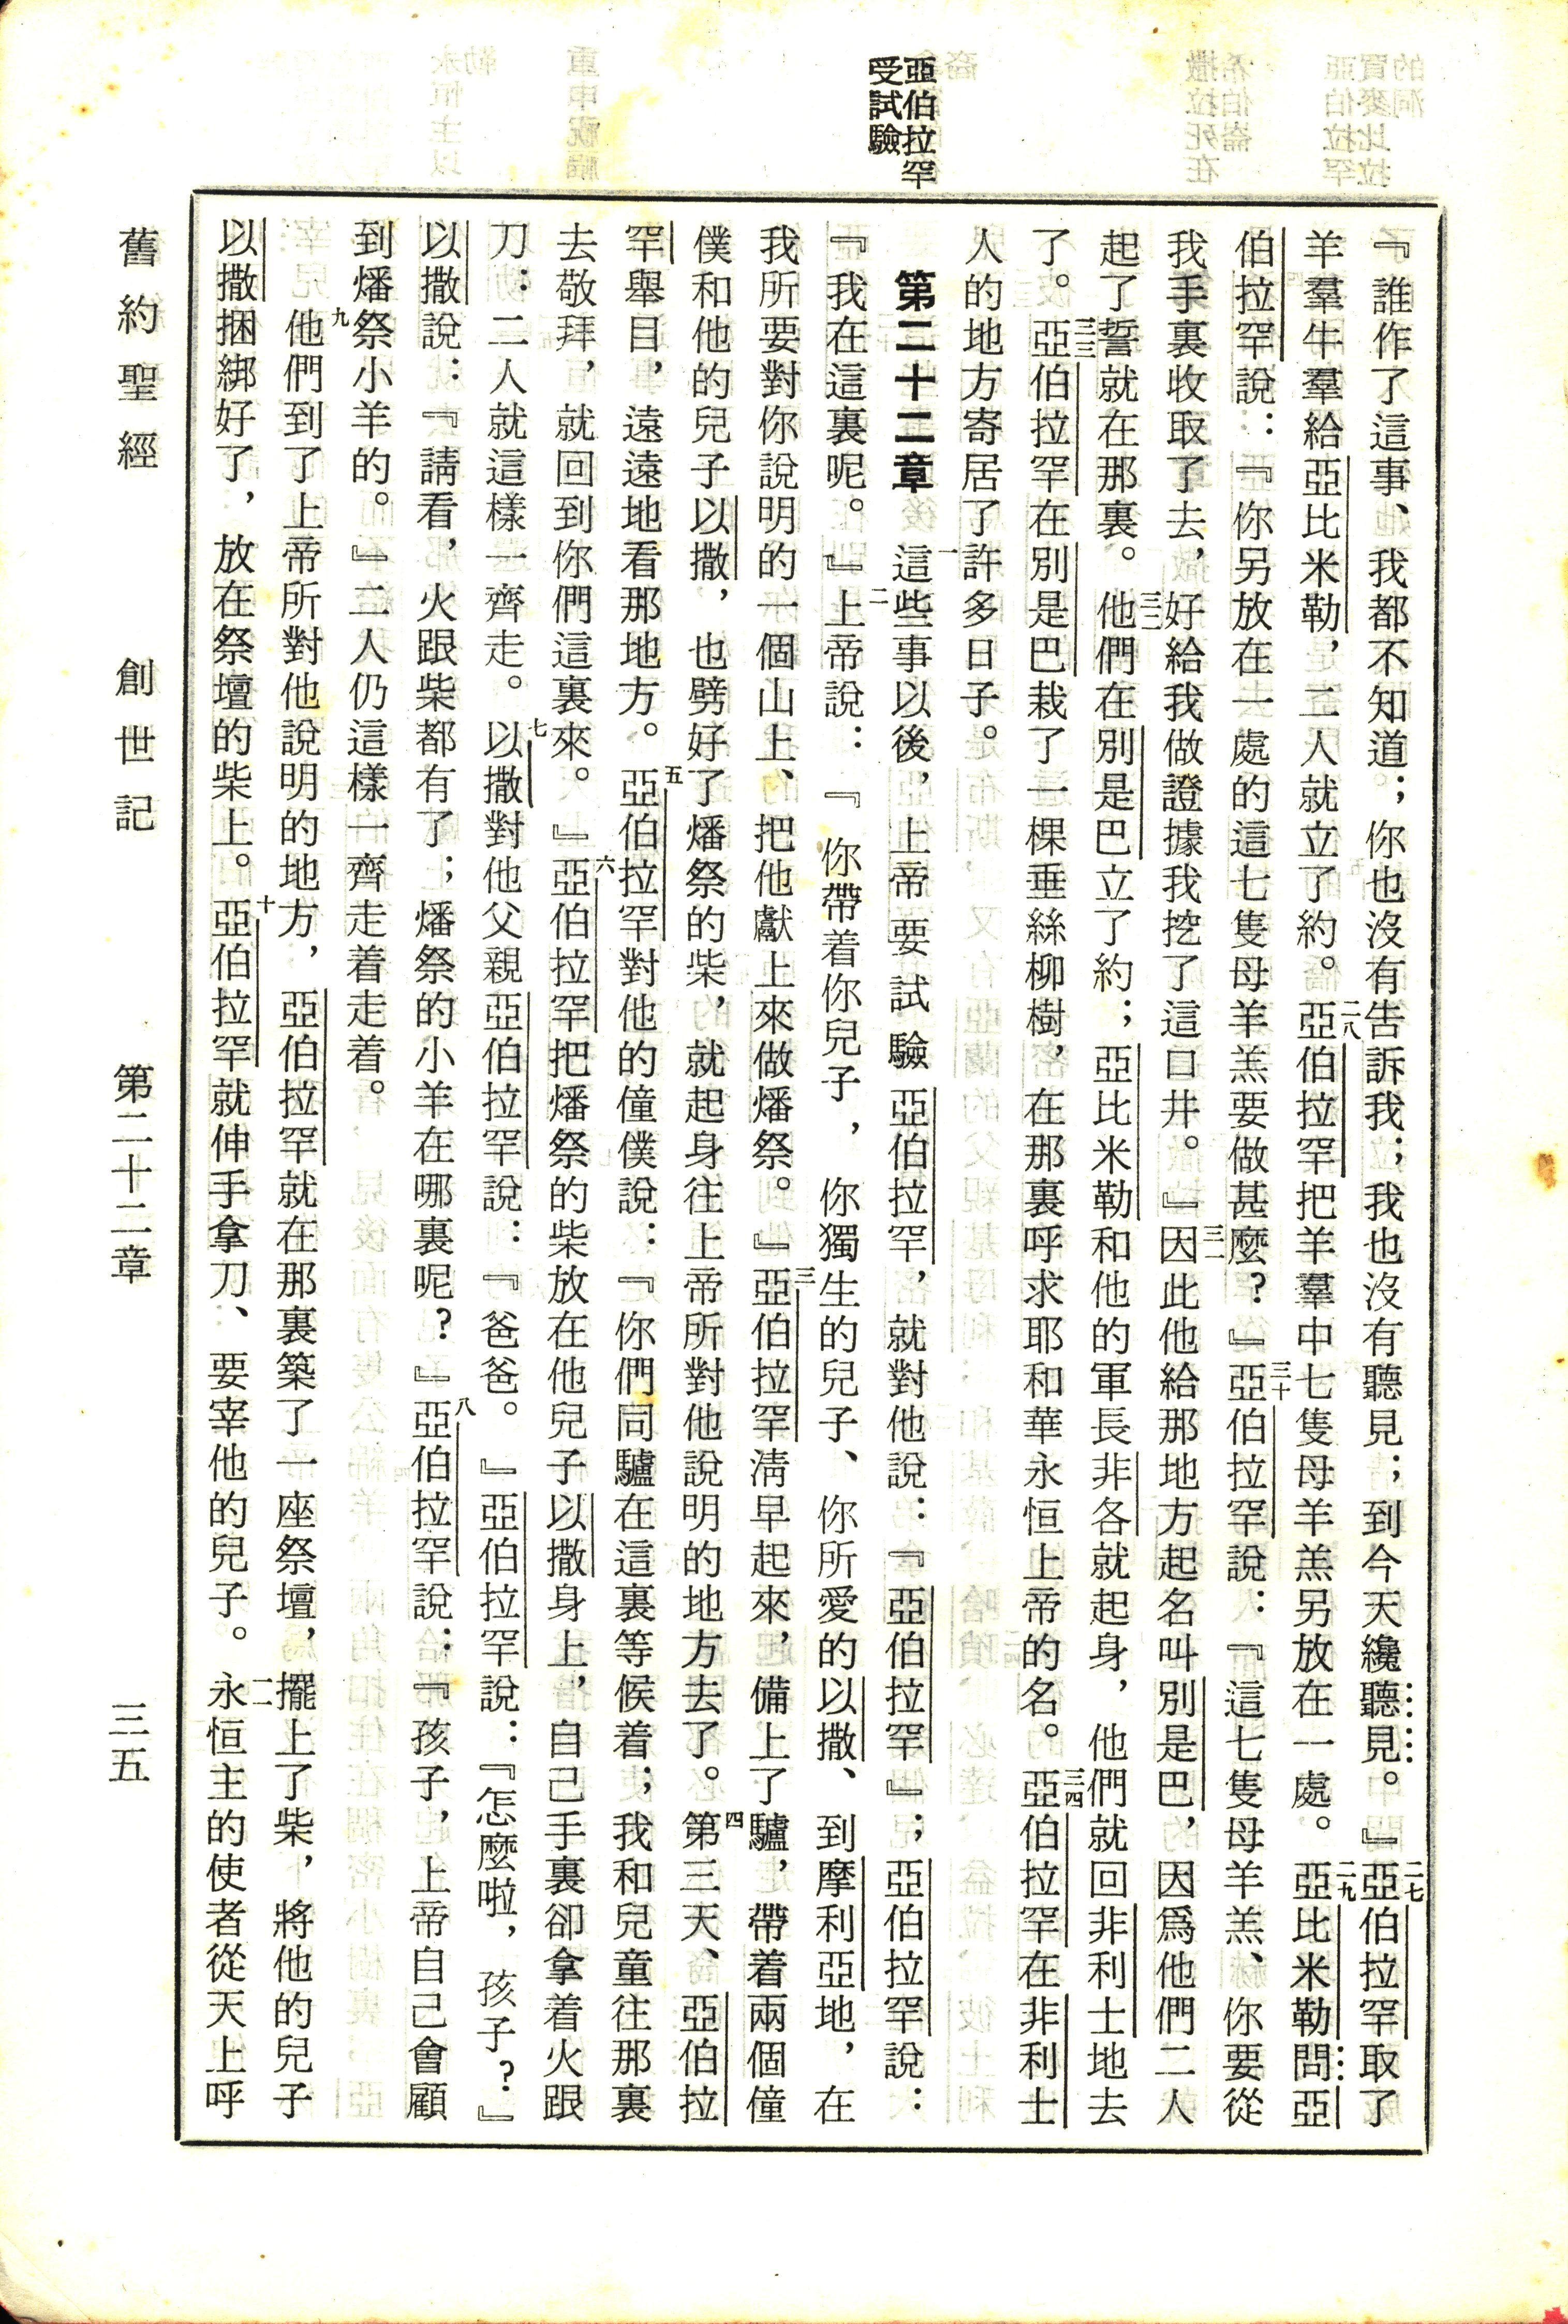 亞伯拉罕
受試驗
『誰作了這事、我都不知道；你也沒有告訴我；我也沒有聽見；到今天纔聽見。』二七亞伯拉罕取了
羊羣牛羣給亞比米勒，二人就立了約。二八亞伯拉罕把羊羣中七隻母羊羔另放在一處。二九亞比米勒問亞
伯拉罕說：『你另放在一處的這七隻母羊羔要做甚麼？』三十亞伯拉罕說：『這七隻母羊羔、你要從
我手裏收取了去，好給我做證據我挖了這口井。』三一因此他給那地方起名叫別是巴，因爲他們二人
起了誓就在那裏。三二他們在別是巴立了約；亞比米勒和他的軍長非各就起身，他們就回非利士地去
了。三三亞伯拉罕在別是巴栽了一棵垂絲柳樹，在那裏呼求耶和華永恒上帝的名。三四亞伯拉罕在非利士
人的地方寄居了許多日子。
第二十二章 一這些事以後，上帝要試驗亞伯拉罕，就對他說：『亞伯拉罕』；亞伯拉罕說：
『我在這裏呢。』二上帝說：『你帶着你兒子，你獨生的兒子、你所愛的以撒、到摩利亞地，在
我所要對你說明的一個山上、把他獻上來做燔祭。』三亞伯拉罕淸早起來，備上了驢，帶着兩個僮
僕和他的兒子以撒，也劈好了燔祭的柴，就起身往上帝所對他說明的地方去了。四第三天、亞伯拉
罕舉目，遠遠地看那地方。五亞伯拉罕對他的僮僕說：『你們同驢在這裏等候着；我和兒童往那裏
去敬拜，就回到你們這裏來。』六亞伯拉罕把燔祭的柴放在他兒子以撒身上，自己手裏卻拿着火跟
刀：二人就這樣一齊走。七以撒對他父親亞伯拉罕說：『爸爸。』亞伯拉罕說：『怎麼啦，孩子？』
以撒說：『請看，火跟柴都有了；燔祭的小羊在哪裏呢？』八亞伯拉罕說：『孩子，上帝自己會顧
到燔祭小羊的。』二人仍這樣一齊走着走着。
九他們到了上帝所對他說明的地方，亞伯拉罕就在那裏築了一座祭壇，擺上了柴，將他的兒子
以撒捆綁好了，放在祭壇的柴上。十亞伯拉罕就伸手拿刀、要宰他的兒子。一一永恒主的使者從天上呼
舊約聖經 創世記 第二十二章 三五